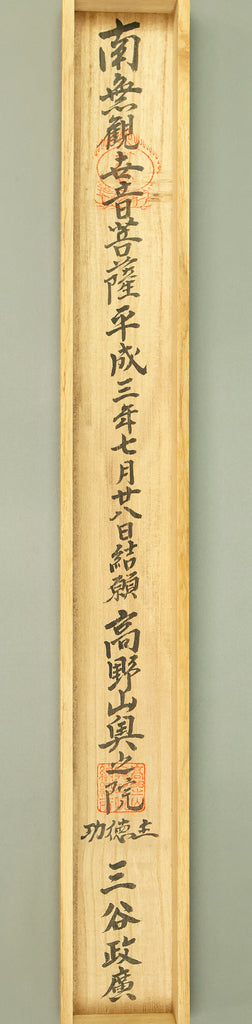 南無観世音菩薩平成三年七月廿八日結願高野山奥之院
功徳主
三谷政廣